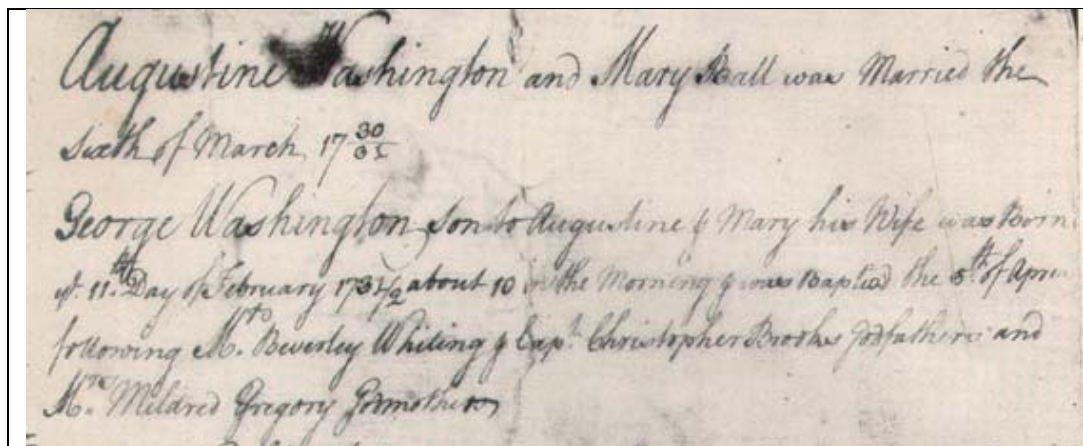 Augustine Washington and Mary Ball was Married the
Sixth of March 17 30/31
George Washington Son to Augustine & Mary his Wife was Born
ye 11th Day of February 1731/2 about 10 in the Morning & was Baptiz'd the 5th of April
following Mr. Beverley Whiting & Capt. Christopher Brooks godfathers and
Mrs. Mildred Gregory Godmother